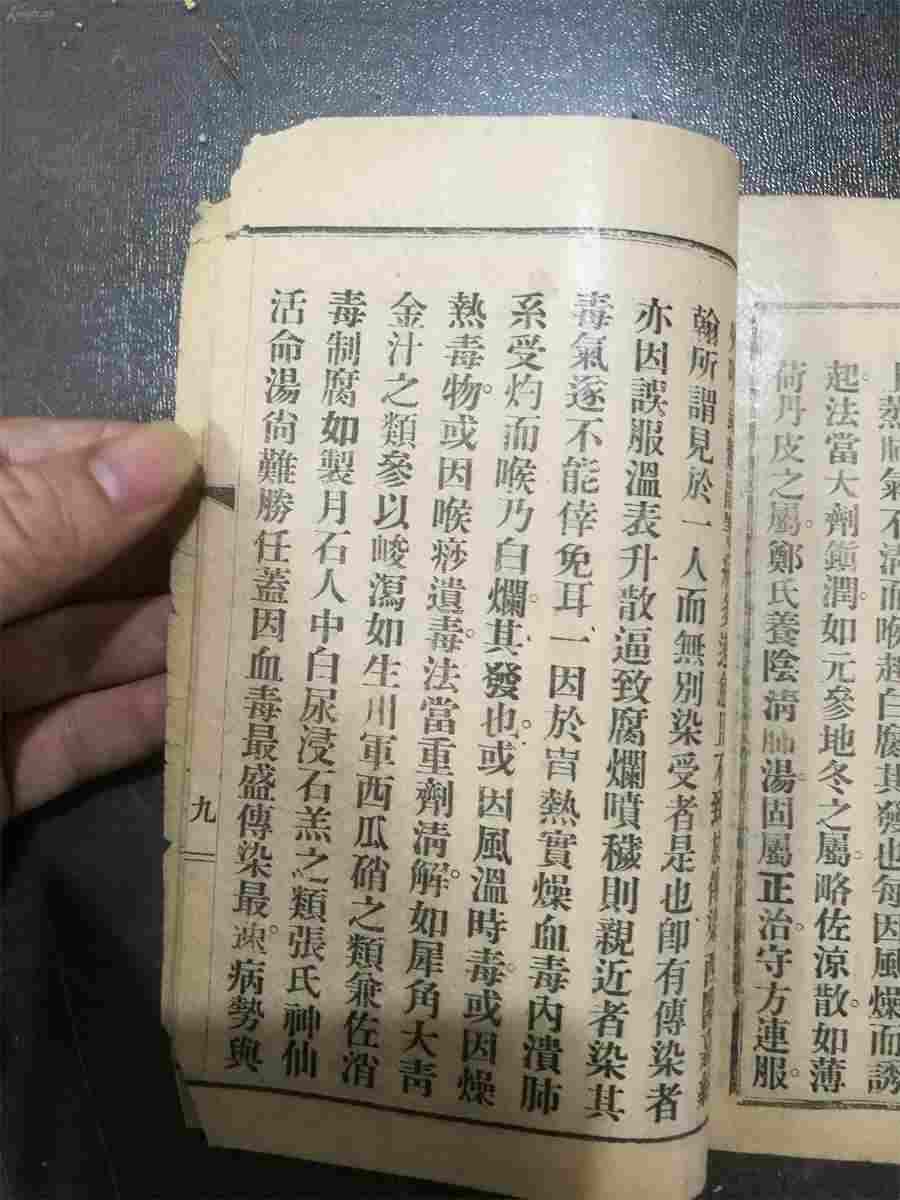 上蒸肺氣不淸而喉起白腐其發也每因風燥而誘
起。法當大劑鎭潤。如元參地冬之屬。略佐涼散。如薄
荷丹皮之屬。鄭氏養陰淸肺湯固屬正治。守方連服。
翰所謂見於一人而無別染受者是也卽有傳染者
亦因誤服溫表升散逼致腐爛噴穢則親近者染其
毒氣逐不能倖免耳一因於胃熱實燥血毒內潰肺
系受灼而喉乃白爛。其發也。或因風溫時毒。或因燥
熱毒物。或因喉痧遺毒。法當重劑淸解。如犀角大青
金汁之類參以峻瀉如生川軍西瓜硝之類兼佐消
毒制腐如製月石人中白尿浸石羔之類張氏神仙
活命湯尙難勝任蓋因血毒最盛傳染最速。病勢與
九